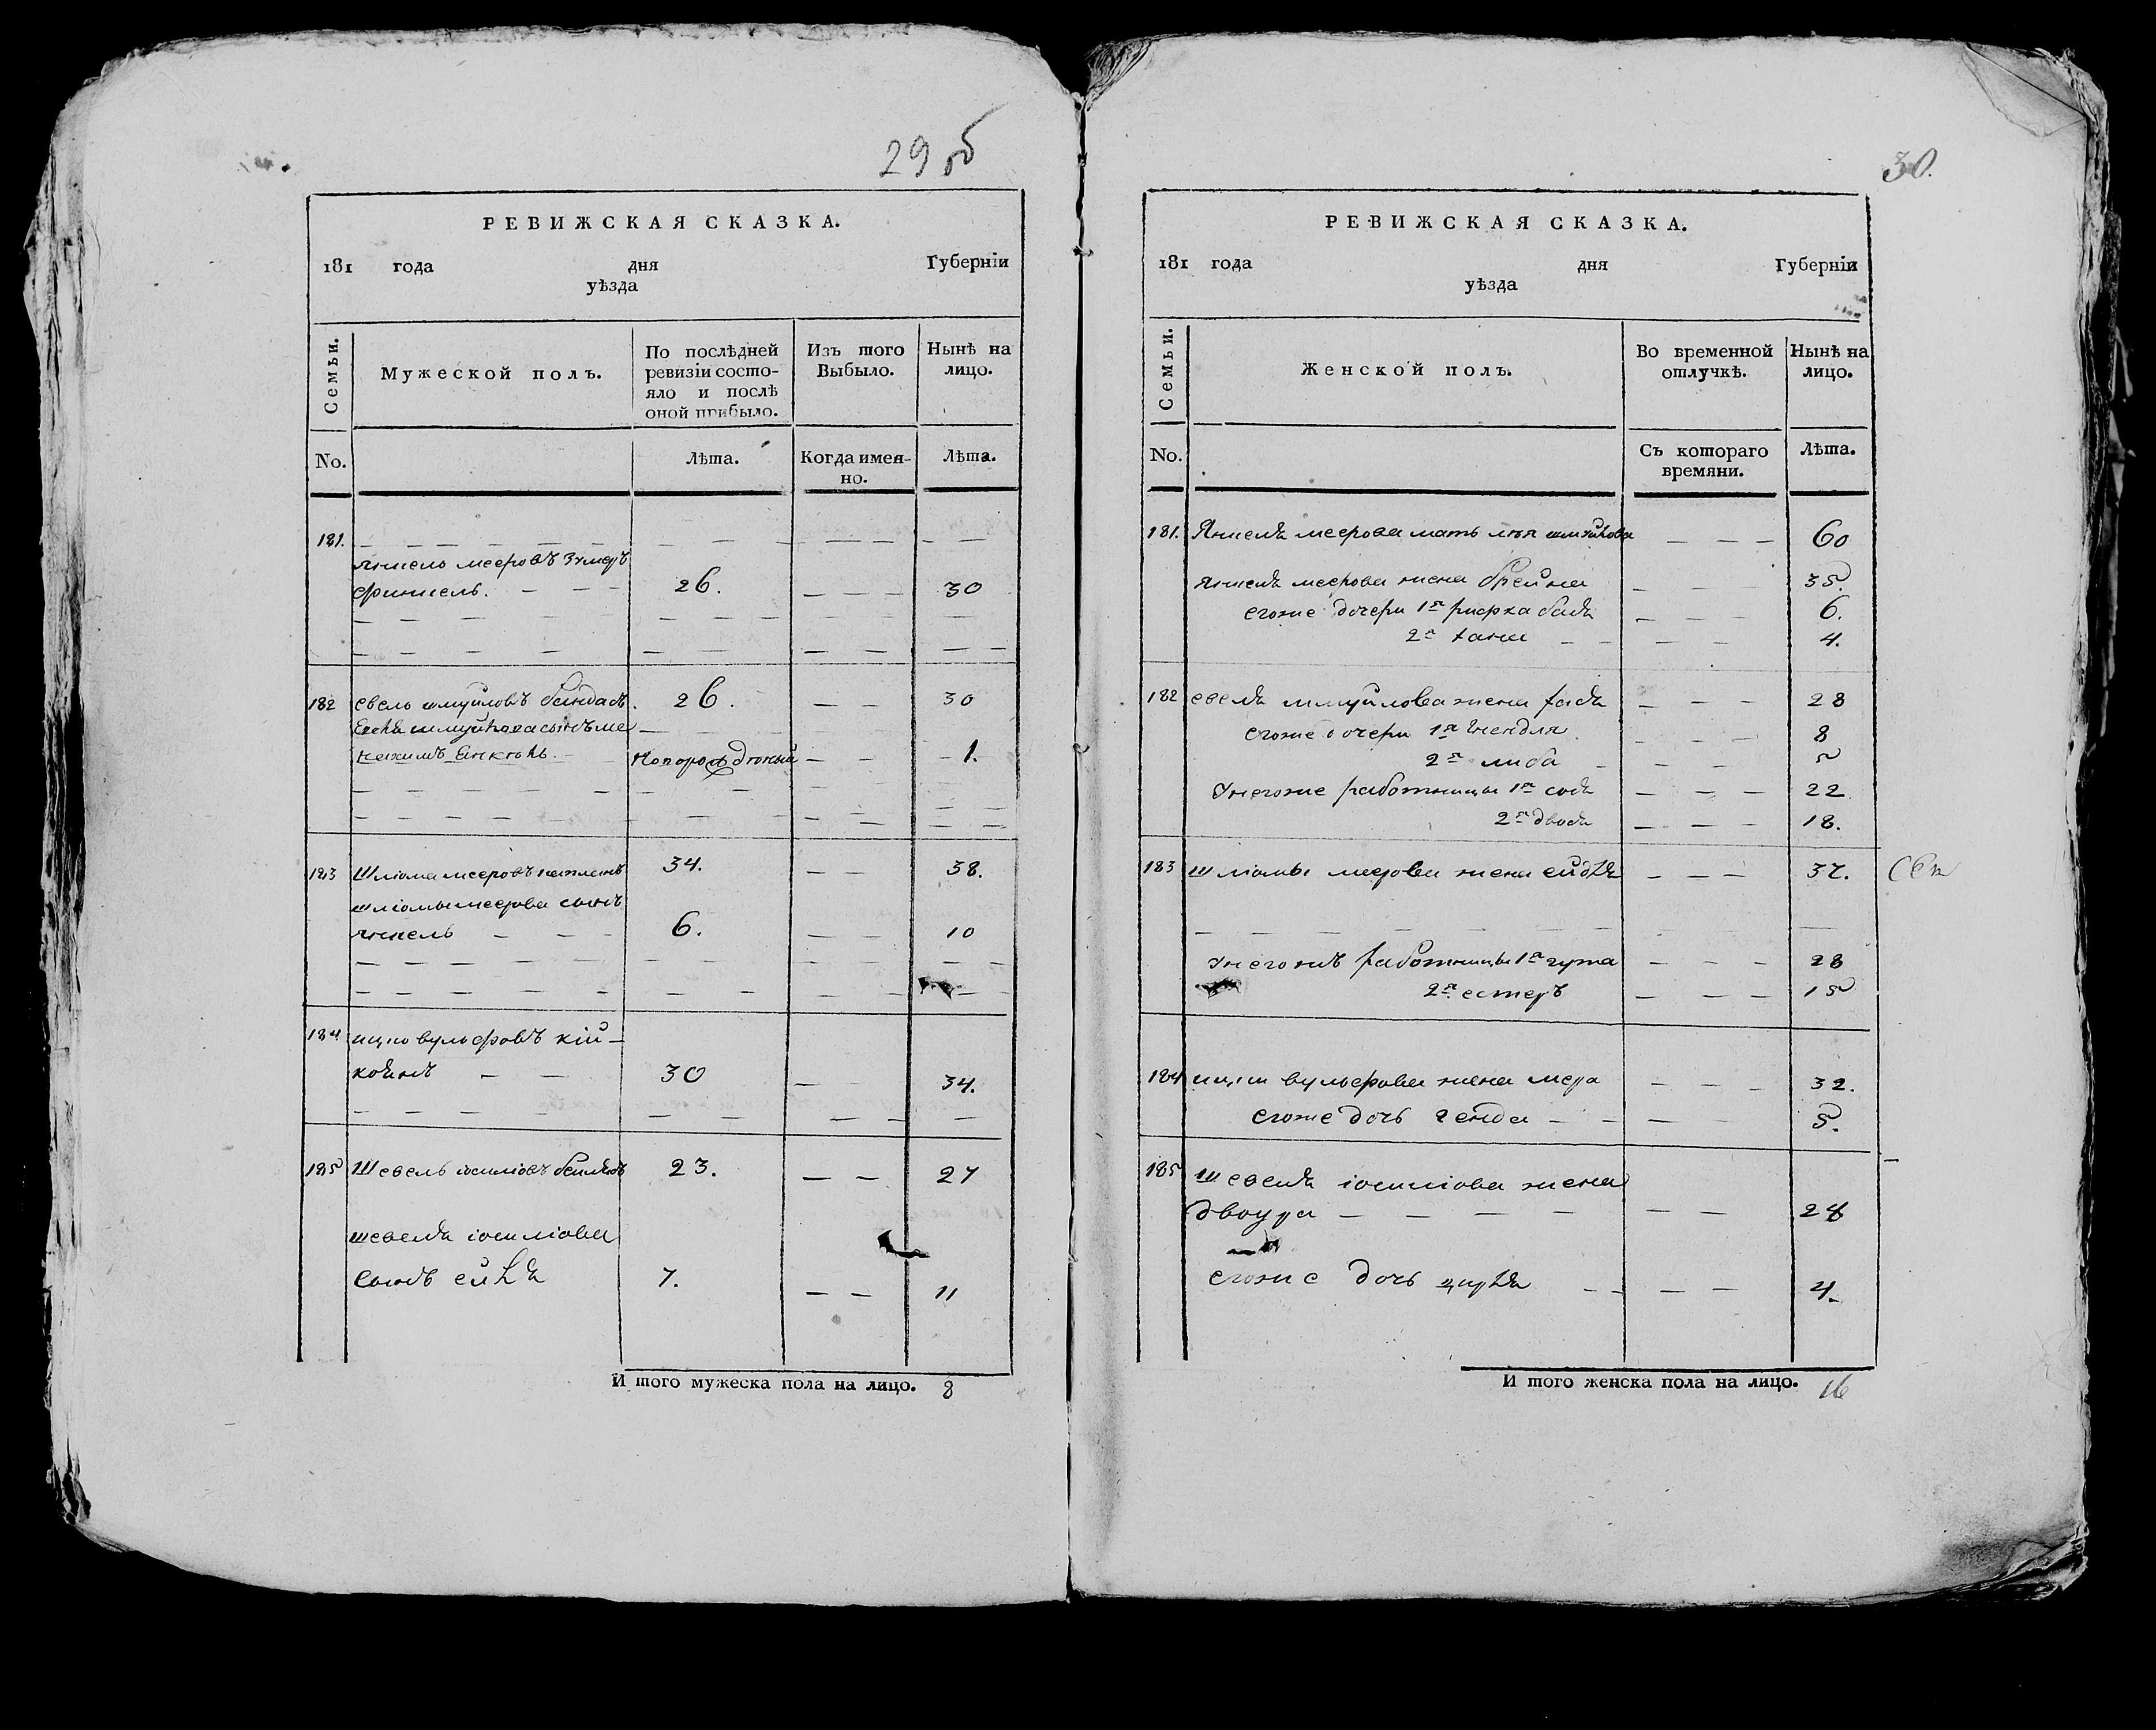 29 об
РЕВИЖСКАЯ СКАЗКА.
181 года дня Губерніи
уѣзда
Семьи. Мужеской полъ. По послѣдней ревизіи состо-яло и послѣ оной прибыло. Изъ того Выбыло. Нынѣ на лицо.
No. Лѣта. Когда имен-но. Лѣта.
181.
янкель мееровъ
финкель. 26. 30
182 евель шмуйловъ 26. 30
шмуйлова сынъ ме
новорожденный 1.
183 Шліома мееровъ 34. 38.
шліомы меерова сынъ
янкель 6. 10
184 ицко вульфовъ кій-
30 34.
185 Шевель іошіовъ 23. 27
шевеля
сынъ 7. 11
И того мужеска пола на лицо. 8
30.
РЕВИЖСКАЯ СКАЗКА.
181 года дня Губерніи
уѣзда
Семьи. Женской полъ. Во временной отлучкѣ. Нынѣ на лицо.
No. Съ котораго времяни. Лѣта.
181. Янкеля меерова мать 60
янкеля меерова жена брейна 35.
егоже дочери 1я рифка 6.
2я хана 4.
182 евеля шмуйлова жена 28
егоже дочери 1я гнендля 8
2я либа 5
у негоже работницы 1я 22
2я двося 18.
183 шліомы меерова жена ейдля 37.
у негожъ работницы 1я гута 28
2я естеръ 15
184 ицки вульфова жена мера 32.
егоже дочь генда 5.
185 шевеля жена
двойра 28
егоже дочь цирля 4.
И того женска пола на лицо. 16